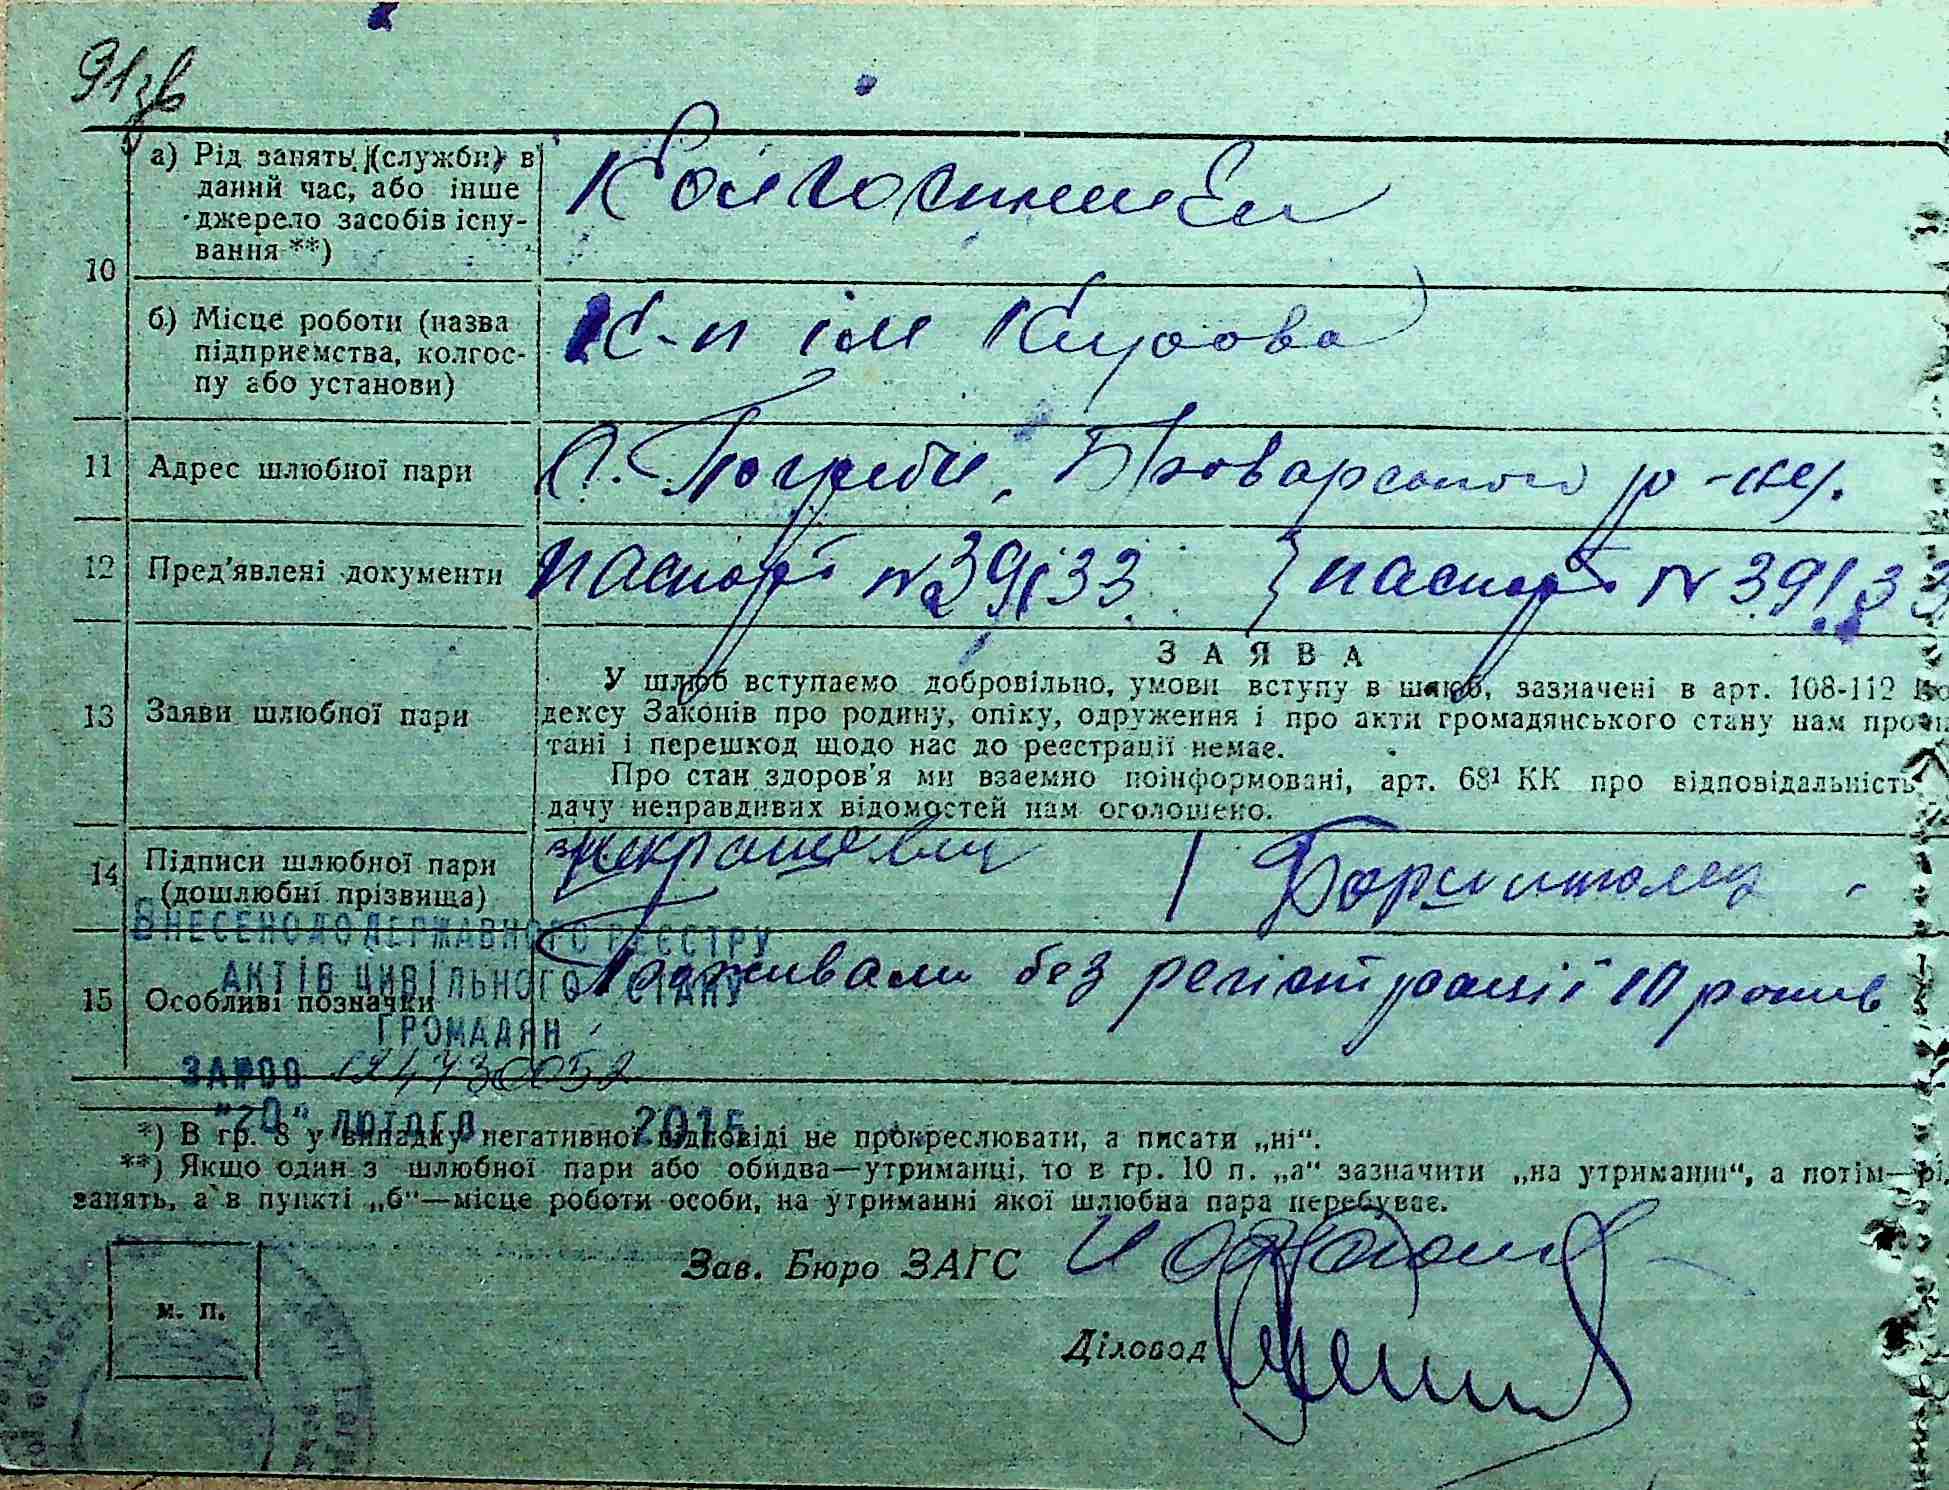 91зв
а) Рід занять (служби) в
даний час, або інше
джерело засобів існу-
вання **)
10
б) Місце роботи (назва
підприємства, колгос-
пу або установи)
К-п ім Кирова
11 Адрес шлюбної пари
с. Погреби, Броварського р-ну.
12 Пред'явлені документи
паспорт № 39133 паспорт № 39133
13 Заяви шлюбної пари
ЗАЯВА
У шлюб вступаємо добровільно, умови вступу в шлюб, зазначені в арт. 108-112 Ко
дексу Законів про родину, опіку, одруження і про акти громадянського стану нам прочи
тані і перешкод щодо нас до реєстрації немає.
Про стан здоров'я ми взаємно поінформовані, арт. 68¹ КК про відповідальність
дачу неправдивих відомостей нам оголошено.
14 Підписи шлюбної пари
(дошлюбні прізвища)
ВНЕСЕНО ДО ДЕРЖАВНОГО РЕЄСТРУ
АКТІВ ЦИВІЛЬНОГО СТАНУ
ГРОМАДЯН
15 Особливі позначки
Проживали без регістрації 10 років
"20" ЛЮТОГО 2015
*) В гр. 8 у випадку негативної відповіді не прокреслювати, а писати „ні“.
**) Якщо один з шлюбної пари або обидва—утриманці, то в гр. 10 п. „а“ зазначити „на утриманні“, а потім—рі
занять, а в пункті „б“—місце роботи особи, на утриманні якої шлюбна пара перебуває.
Зав. Бюро ЗАГС
м. п.
Діловод